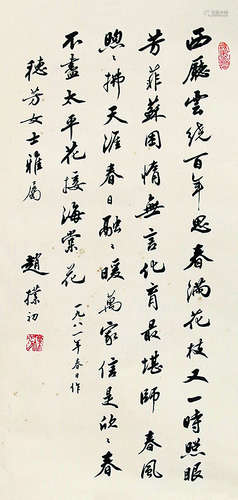 西廳雲繞百年思春滿花枝又一時照眼
芳菲蘇困惰無言化育最堪師 春風
煦〻拂天涯春日融〻暖萬家信是欣〻春
不盡太平花接海棠花
一九八一年春日作
穗芳女士雅属
趙樸初